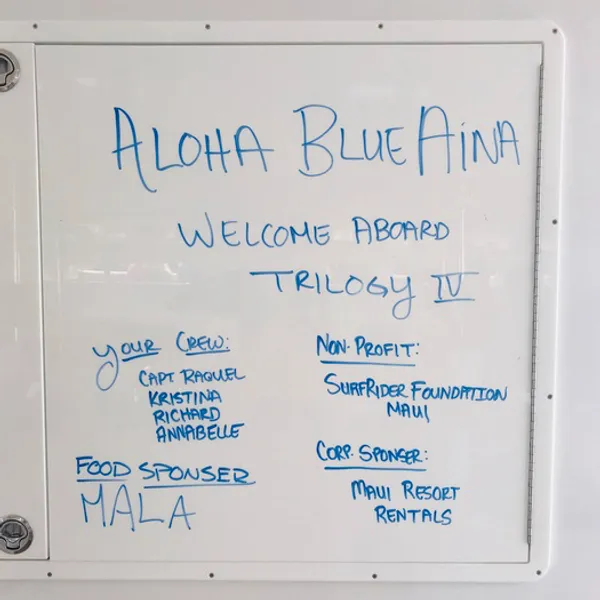 ALOHA BLUEAiNA
WELCOME ABOARD
TRILOGY IV
YOUR CREW:
CAPT RAQUEL
KRISTINA
RICHARD
ANNABELLE
FOOD SPONSER
MALA
NON-PROFIT:
SURFRIDER FOUNDATION
MAUI
CORP. SPONSER:
MAUI RESORT
RENTALS